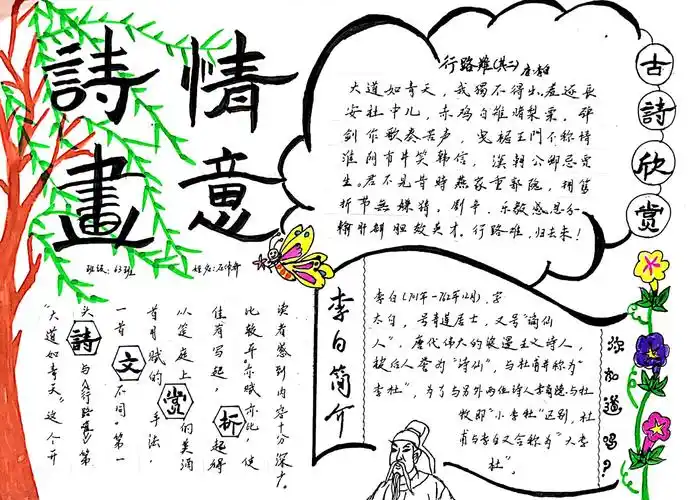 詩情
畫意
班级：63班 姓名：
古詩欣赏
行路难(其二) 唐李白
大道如青天，我獨不得出。羞逐长
安社中儿，赤鸡白雉赌梨栗。弹
剑作歌奏苦声，曳裾王门不称情
淮阴市井笑韩信，漢朝公卿忌贾
生。君不见昔时燕家重郭隗，拥篲
折节無嫌猜。剧辛、乐毅感恩分
输肝剖胆效英才。行路难，归去来！
李白简介
李白(701年—762年12月)，字
太白，号青莲居士，又号“谪仙
人”，唐代伟大的浪漫主义诗人，
被后人誉为“诗仙”，与杜甫并称为“
李杜”，为了与另外两位诗人李商隐与杜
牧即“小李杜”区别，杜
甫与李白又合称为“大李
杜”。
你知道吗？
詩文赏析
“大道如青天”这个开
头与《行路难》第
一首不同。第一
首用赋的手法，
从筵上的美酒
佳有写起，起得
比较平。赋亦比，使
读者感到内容十分深广。